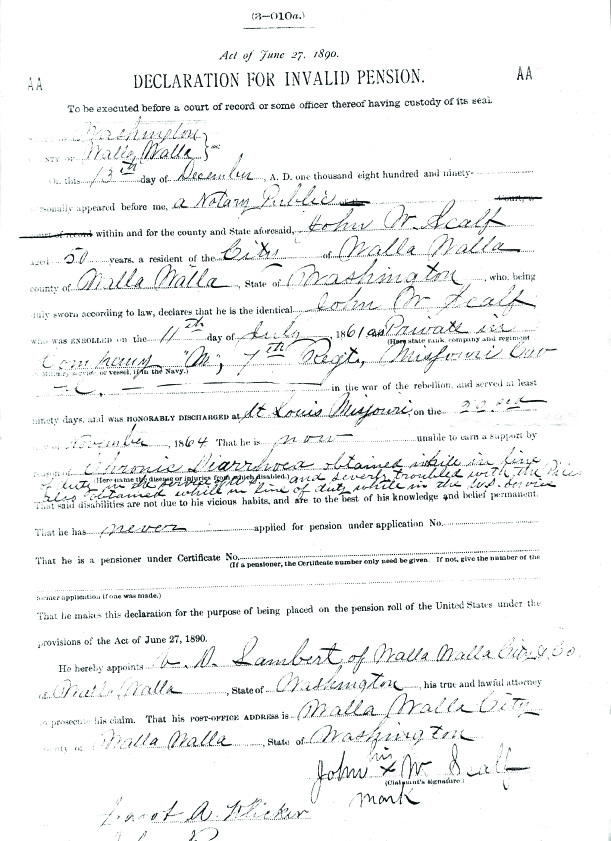 (3—010a.)
Act of June 27, 1890.
AA DECLARATION FOR INVALID PENSION. AA
To be executed before a court of record or some officer thereof having custody of its seal.
Washington
Walla Walla } ss:
On this 13th day of December, A. D. one thousand eight hundred and ninety-
sonally appeared before me, a Notary Public
court of record within and for the county and State aforesaid, John W. Scalf
aged 50 years, a resident of the City of Walla Walla
county of Walla Walla, State of Washington, who, being
duly sworn according to law, declares that he is the identical John W Scalf
who was ENROLLED on the 11th day of July, 1861 as Private in
(Here state rank, company and regiment
Company "M", 7th Regt, Missouri Cav
in the war of the rebellion, and served at least
ninety days, and was HONORABLY DISCHARGED at St Louis Missouri, on the 22nd
November, 1864 That he is now unable to earn a support by
reason of Chronic Diarrhoea obtained while in line
(Here name the disease or injuries from which disabled.)
of duty in the service and severly troubled with the Piles
also obtained while in line of duty while in the U.S. Service
That said disabilities are not due to his vicious habits, and are to the best of his knowledge and belief permanent.
That he has never applied for pension under application No.
That he is a pensioner under Certificate No.
(If a pensioner, the Certificate number only need be given. If not, give the number of the
former application if one was made.)
That he makes this declaration for the purpose of being placed on the pension roll of the United States under the
provisions of the Act of June 27, 1890.
He hereby appoints Lambert of Walla Walla City & Co.
of Walla Walla, State of Washington, his true and lawful attorney
to prosecute his claim. That his POST-OFFICE ADDRESS is Walla Walla City
county of Walla Walla, State of Washington
his
John x W Scalf
(Claimant's signature.)
mark
A. Flicker